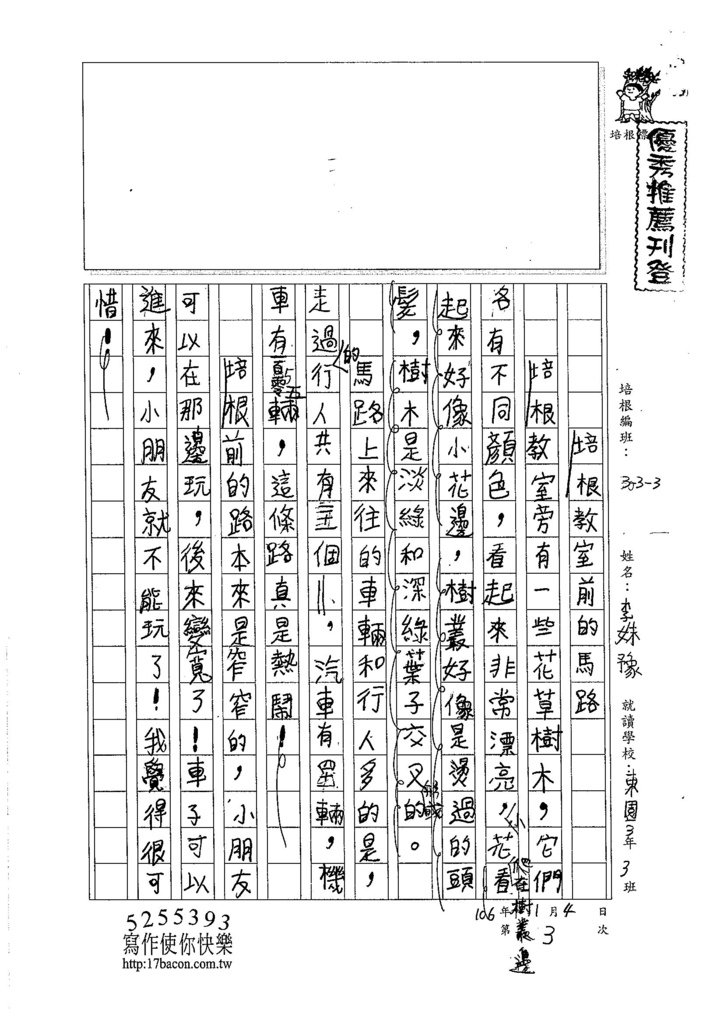 優秀推薦刊登
培根編班：303-3
姓名：李姝豫
就讀學校：東園
3年3班
106年1月4日
第3次
培根教室前的馬路
培根教室旁有一些花草樹木，它們
各有不同顏色，看起來非常漂亮，小花看
爬在樹叢邊
起來好像小花邊，樹叢好像是燙過的頭
髮，樹木是淡綠和深綠葉子交叉的。
馬路上來往的車輛和行人多的是，
走過的行人共有個，汽車有輛，機
車有輛，這條路真是熱鬧！
培根前的路本來是窄窄的，小朋友
可以在那邊玩，後來變寬了！車子可以
進來，小朋友就不能玩了！我覺得很可
惜！
5255393
寫作使你快樂
http:17bacon.com.tw